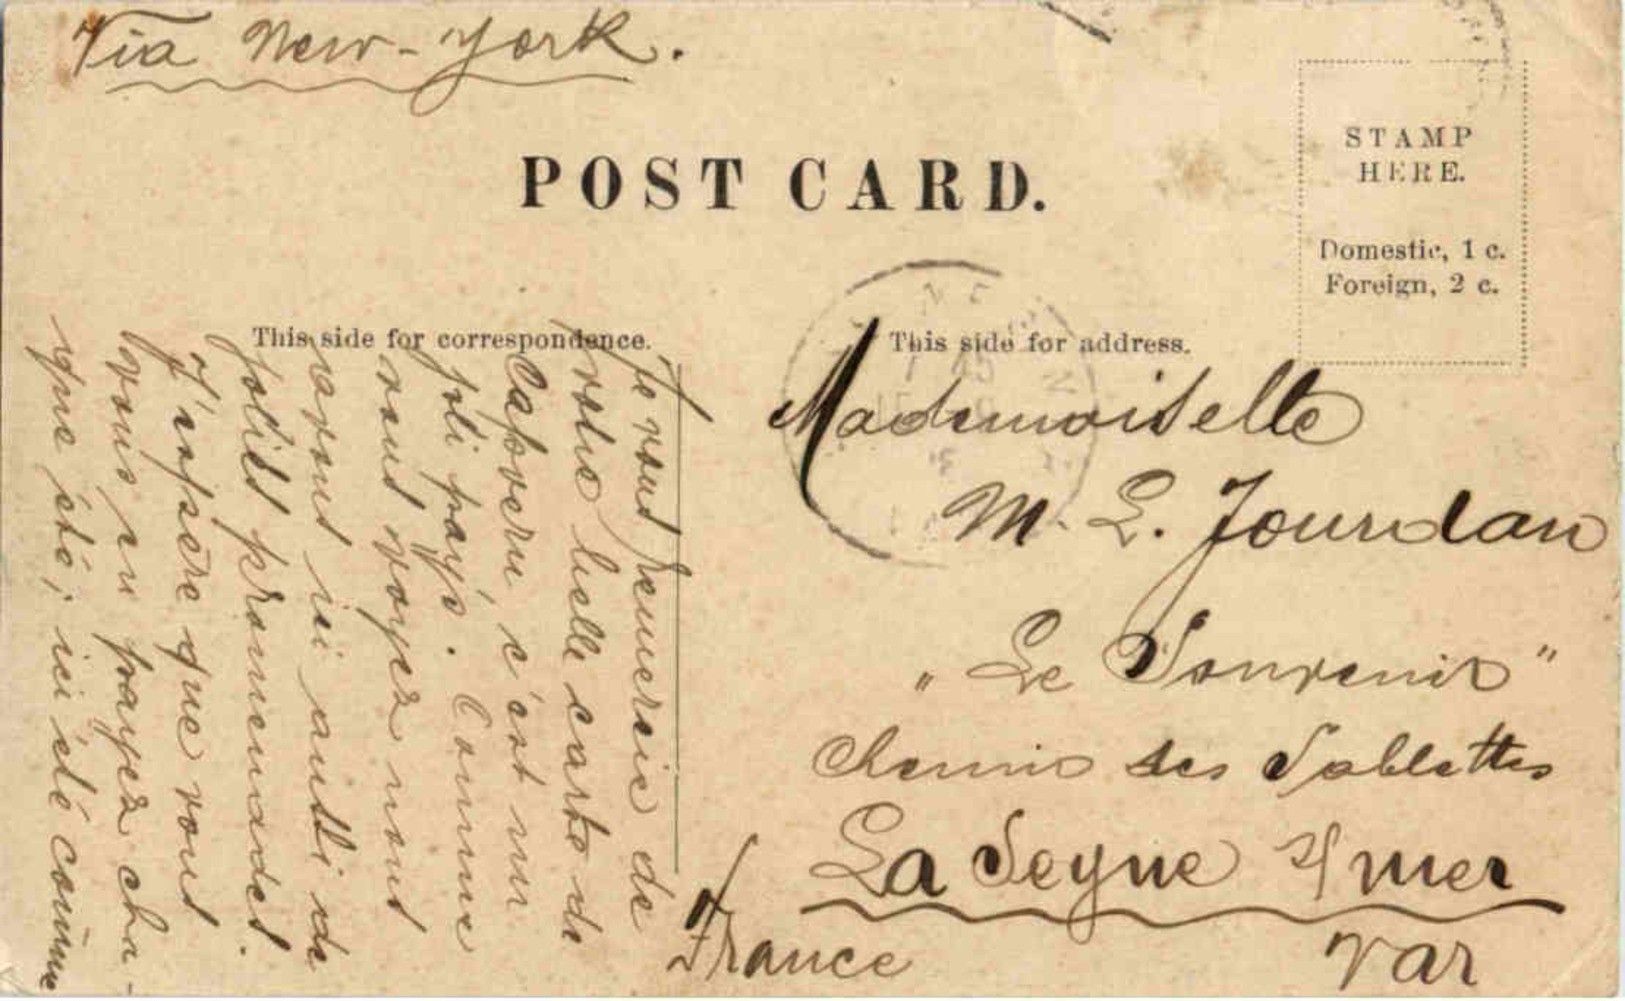 Via New-York.
POST CARD.
STAMP
HERE.
Domestic, 1 c.
Foreign, 2 c.
This side for correspondence.
This side for address.
Je vous remercie de
votre belle carte de
c'est un
joli pays. Comme
vous voyez nous
avons ici aussi de
jolies promenades.
J'espère que vous
vous en payez cha-
que été; ici été comme
Mademoiselle
M. L. Jourdan
"Le Souvenir"
Chemin des Sablettes
La Seyne s/mer
Var
France